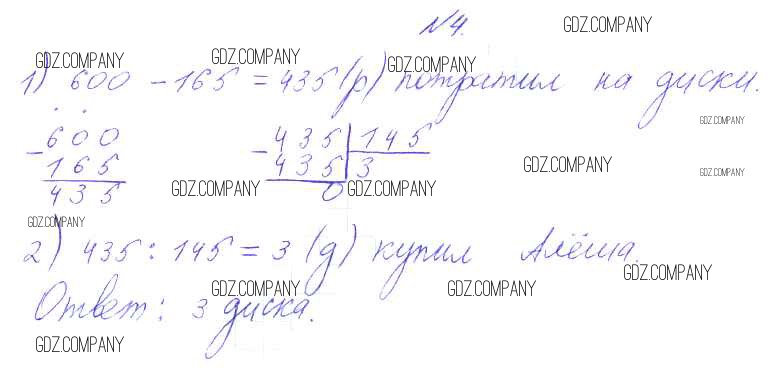 №4.
GDZ.COMPANY
GDZ.COMPANY GDZ.COMPANY GDZ.COMPANY
1) 600 - 165 = 435 (р) потратил на диски.
GDZ.COMPANY
- 600 - 435 | 145
165 435 3
GDZ.COMPANY GDZ.COMPANY
435 0
GDZ.COMPANY GDZ.COMPANY
GDZ.COMPANY
2) 435 : 145 = 3 (д) купил Алёша.
GDZ.COMPANY
GDZ.COMPANY GDZ.COMPANY
Ответ: 3 диска.
GDZ.COMPANY